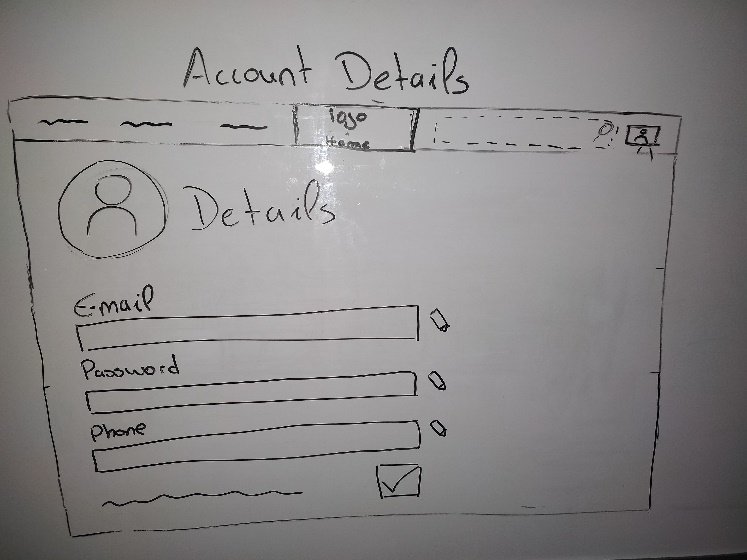 Account Details
logo
Home
Details
E-mail
Password
Phone